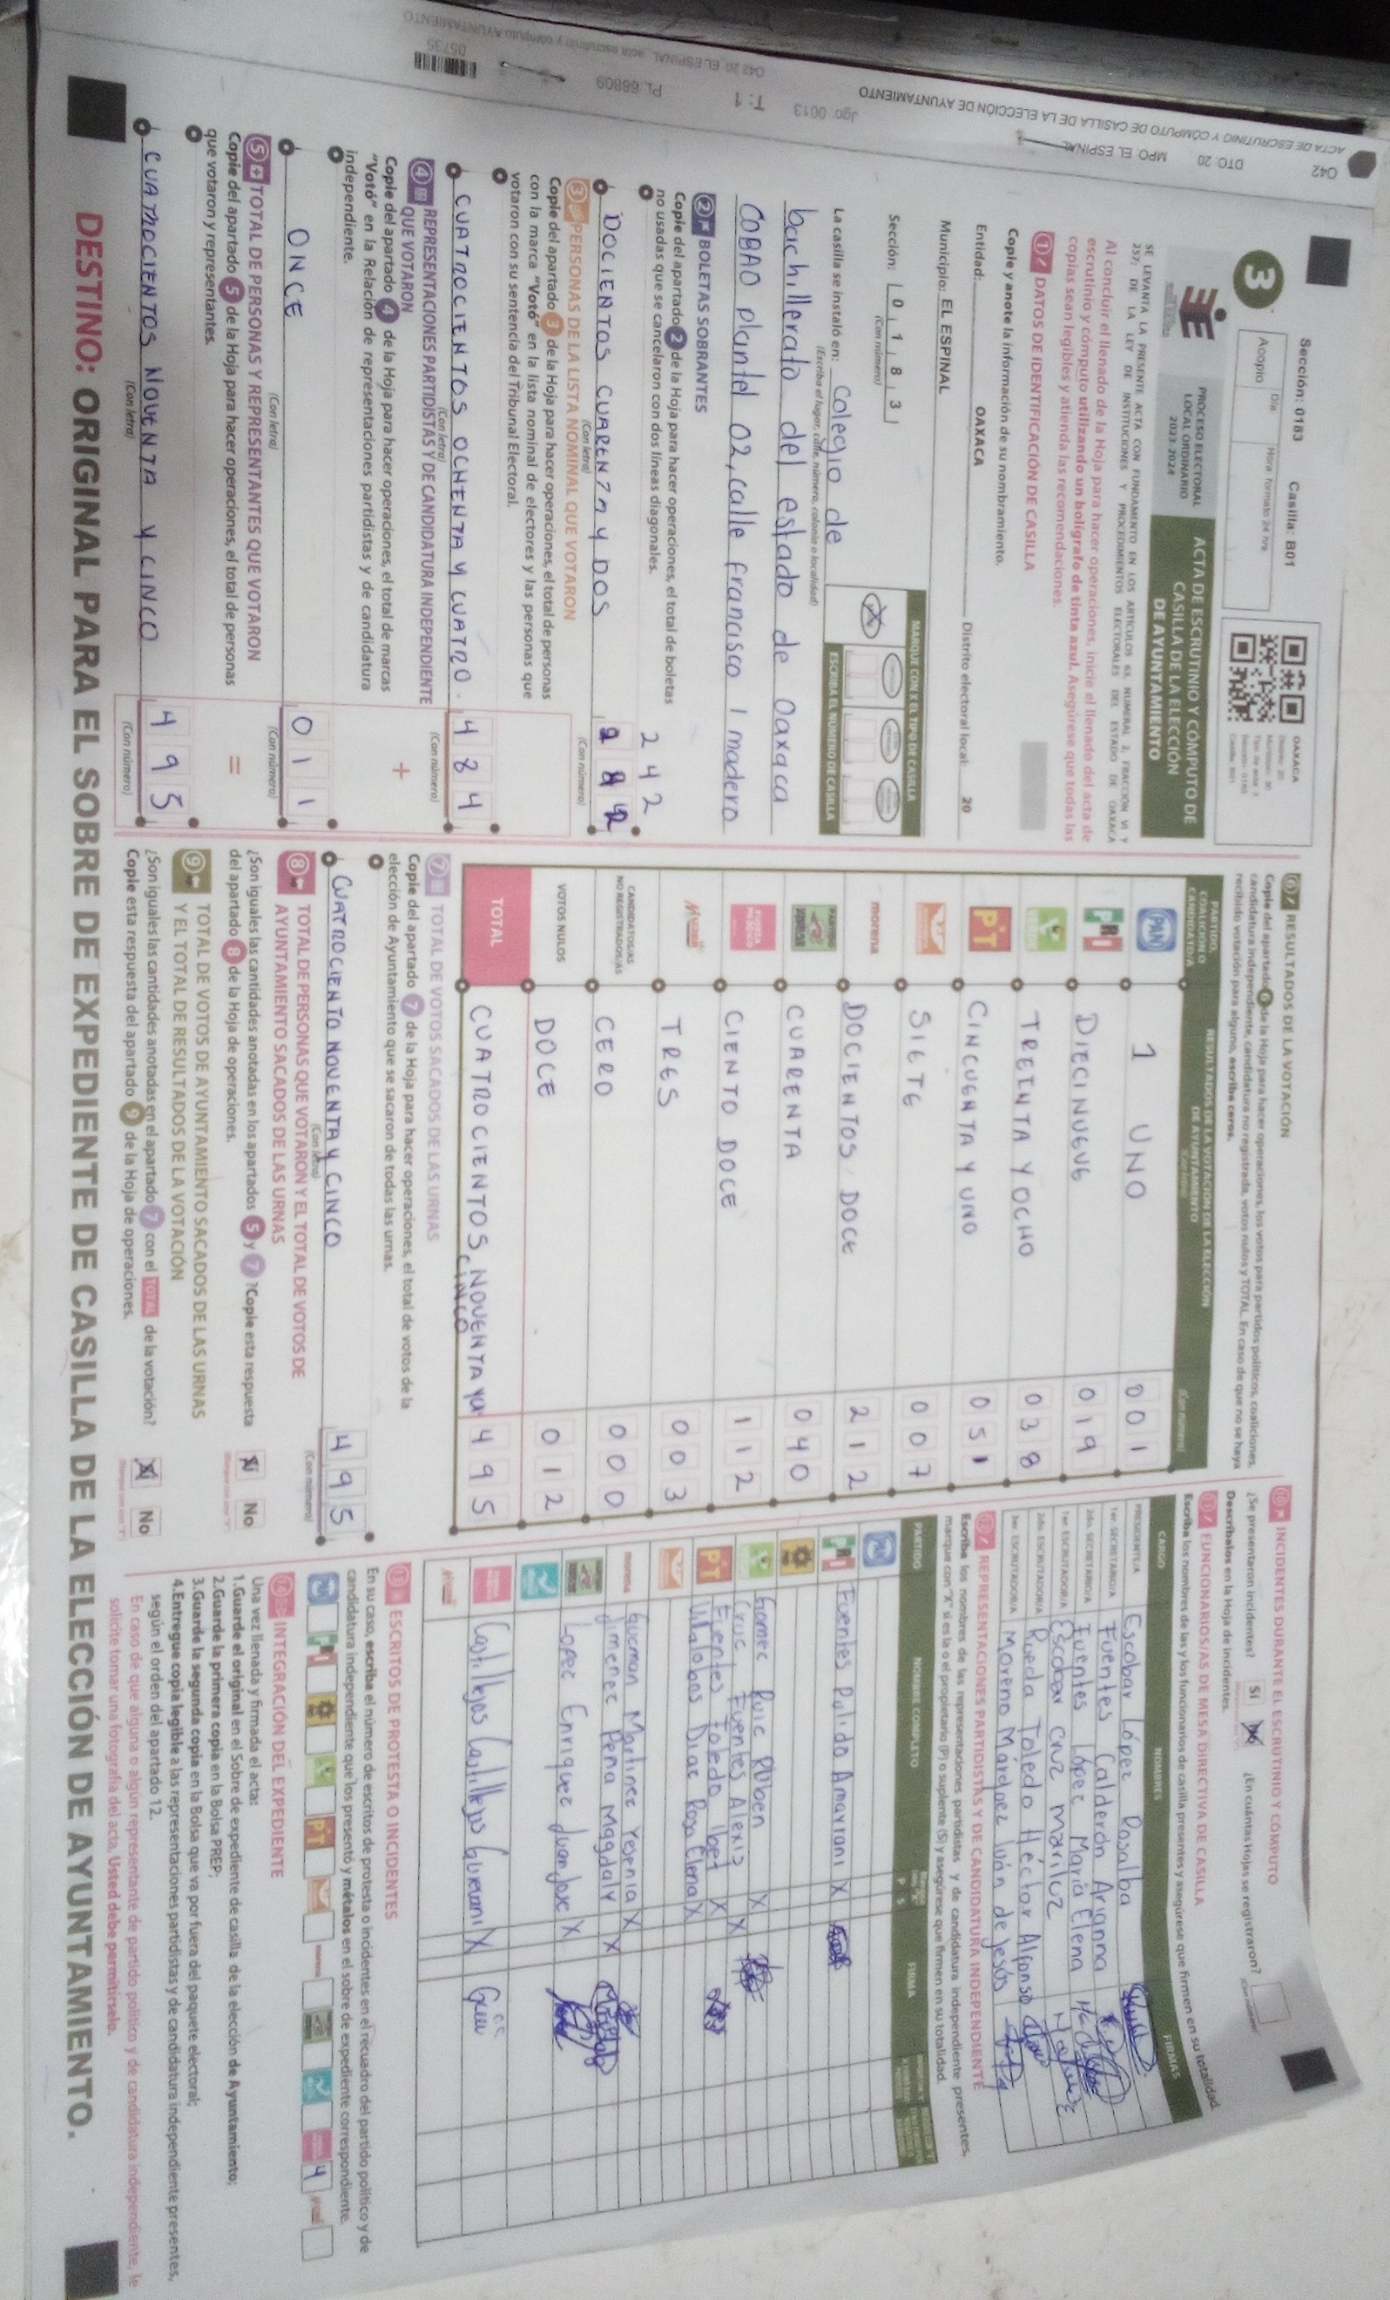 Sección: 0183 Casilla: B01
3
Acopio
Día
Hora formato 24 hrs
OAXACA
PROCESO ELECTORAL
LOCAL ORDINARIO
2023-2024
ACTA DE ESCRUTINIO Y CÓMPUTO DE
CASILLA DE LA ELECCIÓN
DE AYUNTAMIENTO
Al concluir el llenado de la Hoja para hacer operaciones, inicie el llenado del acta de
escrutinio y cómputo utilizando un bolígrafo de tinta azul. Asegúrese que todas las
copias sean legibles y atienda las recomendaciones.
1 DATOS DE IDENTIFICACIÓN DE CASILLA
Copie y anote la información de su nombramiento.
Entidad: OAXACA Distrito electoral local: 20
Municipio: EL ESPINAL
Sección: 0 1 8 3
(Con número)
MARQUE CON X EL TIPO DE CASILLA
X
ESCRIBA EL NÚMERO DE CASILLA
La casilla se instaló en: Colegio de
(Escriba el lugar, calle, número, colonia o localidad)
bachillerato del estado de Oaxaca
COBAO plantel 02, calle francisco I madero
2 BOLETAS SOBRANTES
Copie del apartado 2 de la Hoja para hacer operaciones, el total de boletas
no usadas que se cancelaron con dos líneas diagonales.
242
DOCIENTOS CUARENTA y DOS
(Con letra) (Con número)
3 PERSONAS DE LA LISTA NOMINAL QUE VOTARON
Copie del apartado 3 de la Hoja para hacer operaciones, el total de personas
con la marca "Votó" en la lista nominal de electores y las personas que
votaron con su sentencia del Tribunal Electoral.
CUATROCIENTOS OCHENTA Y CUATRO. 484
(Con letra) (Con número)
4 REPRESENTACIONES PARTIDISTAS Y DE CANDIDATURA INDEPENDIENTE
QUE VOTARON
Copie del apartado 4 de la Hoja para hacer operaciones, el total de marcas
"Votó" en la Relación de representaciones partidistas y de candidatura
independiente.
+
ONCE 011
(Con letra) (Con número)
5 TOTAL DE PERSONAS Y REPRESENTANTES QUE VOTARON
Copie del apartado 5 de la Hoja para hacer operaciones, el total de personas
que votaron y representantes.
=
CUATROCIENTOS NOVENTA Y CINCO 495
(Con letra) (Con número)
6 RESULTADOS DE LA VOTACIÓN
Copie del apartado 6 de la Hoja para hacer operaciones, los votos para partidos políticos, coaliciones,
candidatura independiente, candidatura no registrada, votos nulos y TOTAL. En caso de que no se haya
recibido votación para alguno, escriba ceros.
PARTIDO,
COALICIÓN O
CANDIDATO/A
RESULTADOS DE LA VOTACIÓN DE LA ELECCIÓN
DE AYUNTAMIENTO
(Con letra) (Con número)
PAN 1 UNO 001
PRI DIECINUEVE 019
TREINTA Y OCHO 038
PT CINCUENTA Y UNO 051
SIETE 007
morena DOCIENTOS DOCE 212
CUARENTA 040
CIENTO DOCE 112
TRES 003
CANDIDATOS/AS
NO REGISTRADOS/AS CERO 000
VOTOS NULOS DOCE 012
TOTAL CUATROCIENTOS NOVENTA Y 495
CINCO
7 TOTAL DE VOTOS SACADOS DE LAS URNAS
Copie del apartado 7 de la Hoja para hacer operaciones, el total de votos de la
elección de Ayuntamiento que se sacaron de todas las urnas.
CUATROCIENTO NOVENTA Y CINCO 495
(Con letra) (Con número)
8 TOTAL DE PERSONAS QUE VOTARON Y EL TOTAL DE VOTOS DE
AYUNTAMIENTO SACADOS DE LAS URNAS
¿Son iguales las cantidades anotadas en los apartados 5 y 7 ? Copie esta respuesta
del apartado 8 de la Hoja de operaciones.
Sí No
9 TOTAL DE VOTOS DE AYUNTAMIENTO SACADOS DE LAS URNAS
Y EL TOTAL DE RESULTADOS DE LA VOTACIÓN
¿Son iguales las cantidades anotadas en el apartado 7 con el TOTAL de la votación?
Copie esta respuesta del apartado 9 de la Hoja de operaciones.
Sí No
10 INCIDENTES DURANTE EL ESCRUTINIO Y CÓMPUTO
¿Se presentaron incidentes? Sí No ¿En cuántas Hojas se registraron?
Descríbalos en la Hoja de incidentes.
11 FUNCIONARIOS/AS DE MESA DIRECTIVA DE CASILLA
Escriba los nombres de las y los funcionarios de casilla presentes y asegúrese que firmen en su totalidad.
CARGO NOMBRES FIRMAS
PRESIDENTE/A Escobar López Rosalba
1er. SECRETARIO/A Fuentes Calderón Arianna
2do. SECRETARIO/A Fuentes López María Elena
1er. ESCRUTADOR/A Escobar Cruz Mariluz
2do. ESCRUTADOR/A Rueda Toledo Héctor Alfonso
3er. ESCRUTADOR/A Moreno Márquez Iván de Jesús
12 REPRESENTACIONES PARTIDISTAS Y DE CANDIDATURA INDEPENDIENTE
Escriba los nombres de las representaciones partidistas y de candidatura independiente presentes,
marque con "X" si es la o el propietario (P) o suplente (S) y asegúrese que firmen en su totalidad.
PARTIDO NOMBRE COMPLETO P S FIRMA
PRI Fuentes Pulido Amayrani X
Gomez Ruiz Ruben X
Cruz Fuentes Alexis X
PT Fuentes Toledo Ibet X
Villalobos Diaz Rosa Elena X
morena Guzman Martinez Yesenia X
Jimenez Peña Magdaly X
Lopez Enriquez Juan Jose X
Castillejos Castillejos Guevani X
13 ESCRITOS DE PROTESTA O INCIDENTES
En su caso, escriba el número de escritos de protesta o incidentes en el recuadro del partido político y de
candidatura independiente que los presentó y métalos en el sobre de expediente correspondiente.
PRI PT 4
14 INTEGRACIÓN DEL EXPEDIENTE
Una vez llenada y firmada el acta:
1.Guarde el original en el Sobre de expediente de casilla de la elección de Ayuntamiento;
2.Guarde la primera copia en la Bolsa PREP;
3.Guarde la segunda copia en la Bolsa que va por fuera del paquete electoral;
4.Entregue copia legible a las representaciones partidistas y de candidatura independiente presentes,
según el orden del apartado 12.
En caso de que alguna o algún representante de partido político y de candidatura independiente, le
solicite tomar una fotografía del acta. Usted debe permitírselo.
DESTINO: ORIGINAL PARA EL SOBRE DE EXPEDIENTE DE CASILLA DE LA ELECCIÓN DE AYUNTAMIENTO.
ACTA DE ESCRUTINIO Y CÓMPUTO DE CASILLA DE LA ELECCIÓN DE AYUNTAMIENTO
O42 DTO. 20 MPO. EL ESPINAL
Jgo: 0013 T: 1 PL 66809
05735